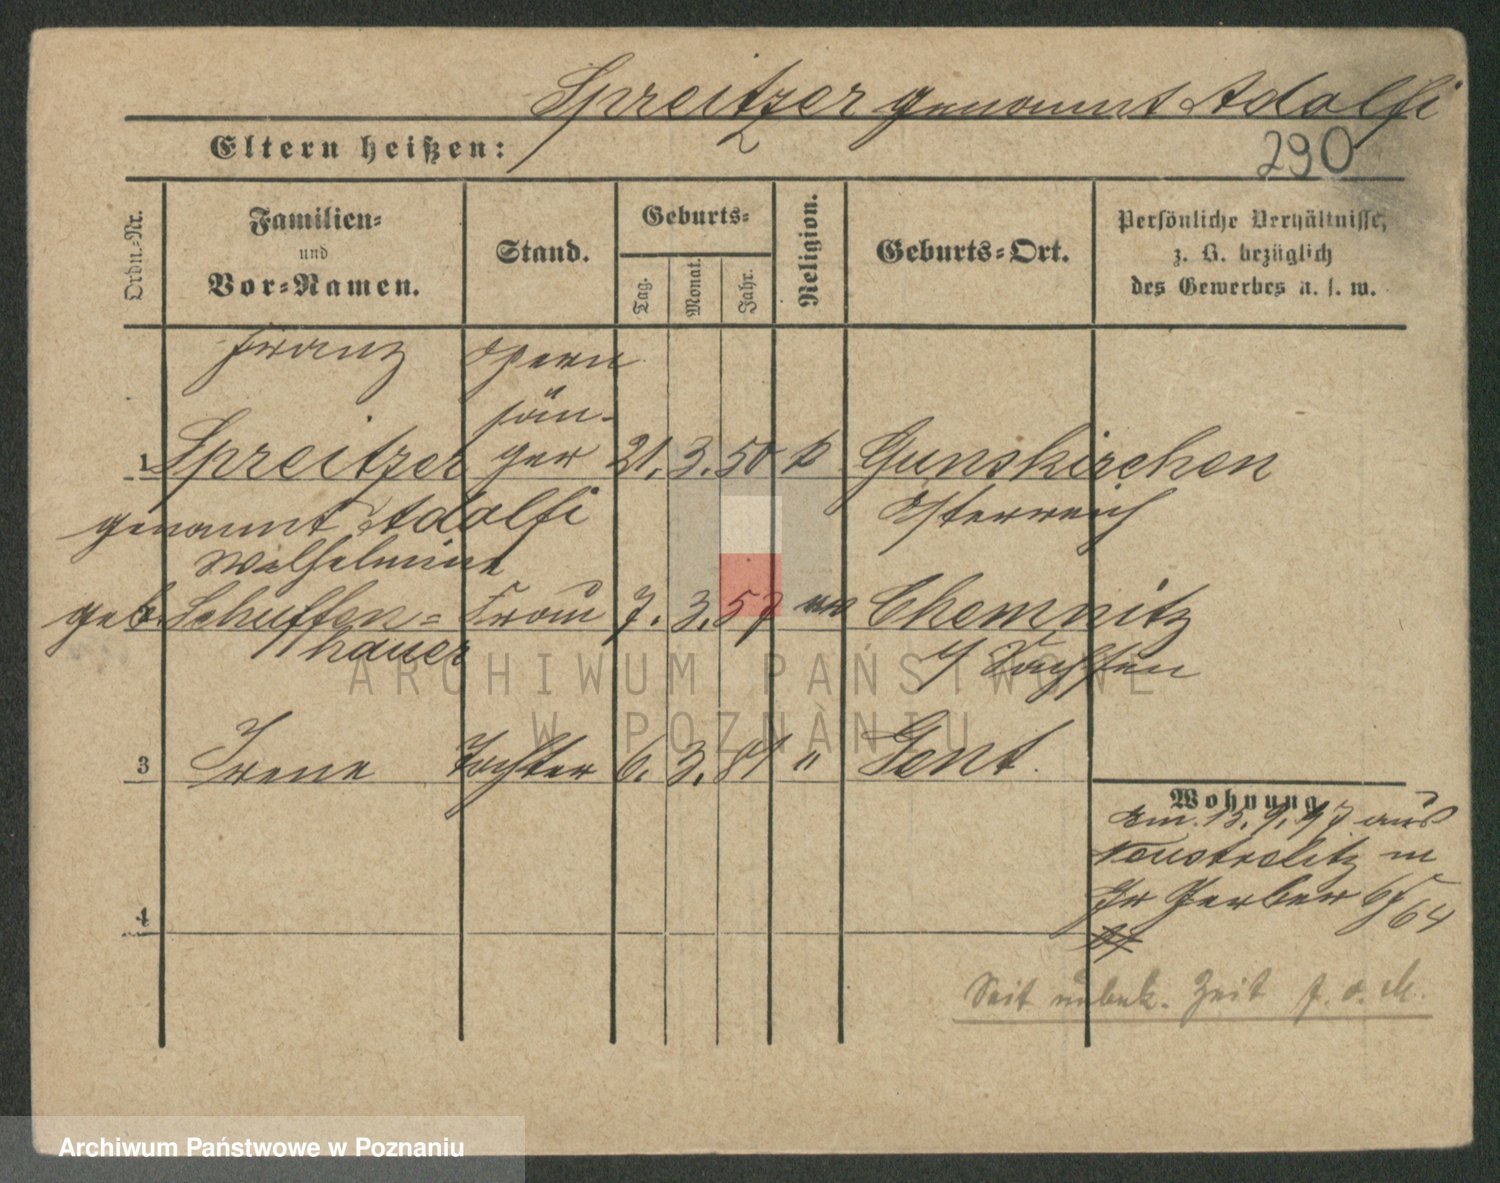 Spreitzer genannt Adolfi
Eltern heißen:
290
Ordn.-Nr.
Familien-
und
Vor-Namen.
Stand.
Geburts-
Tag.
Monat.
Jahr.
Religion.
Geburts-Ort.
Persönliche Verhältnisse,
z. B. bezüglich
des Gewerbes u. s. w.
Franz Opern
sän-
1 Spreitzer ger 21. 3. 50 k Gunskirchen
genannt Adolfi Österreich
Wilhelmine
geb. Schuffen= Frau 7. 3. 57 ev Chemnitz
hauer i/ Sachsen
3 Irene Tochter 6. 3. 81 " Gent.
Wohnung
am 15. 9. 97 aus
Neustrelitz in
Gr Gerber 67
64
4
Seit unbek. Zeit
ARCHIWUM PAŃSTWOWE
W POZNANIU
Archiwum Państwowe w Poznaniu